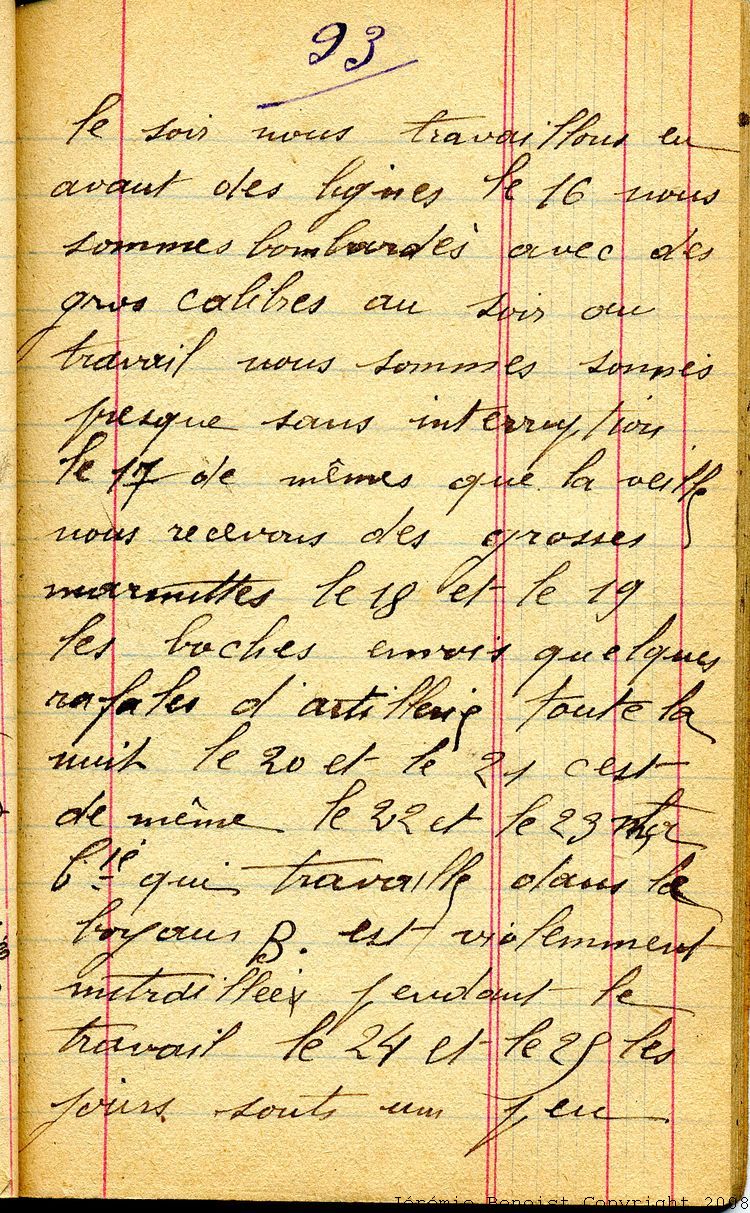 93
le soir nous travaillons en
avant des lignes le 16 nous
sommes bombardés avec des
gros calibres au soir au
travail nous sommes sonnés
presque sans interruption
le 17 de mêmes que la veille
nous recevons des grosses
marmittes le 18 et le 19
les boches envois quelques
rafales d'artillerie toute la
nuit le 20 et le 21 cest
de même le 22 et le 23
Cie qui travaille dans le
boyaus B. est violemment
mitraillées pendant le
travail le 24 et le 25 les
jours sonts um peu
Jérémie Benoist Copyright 2008